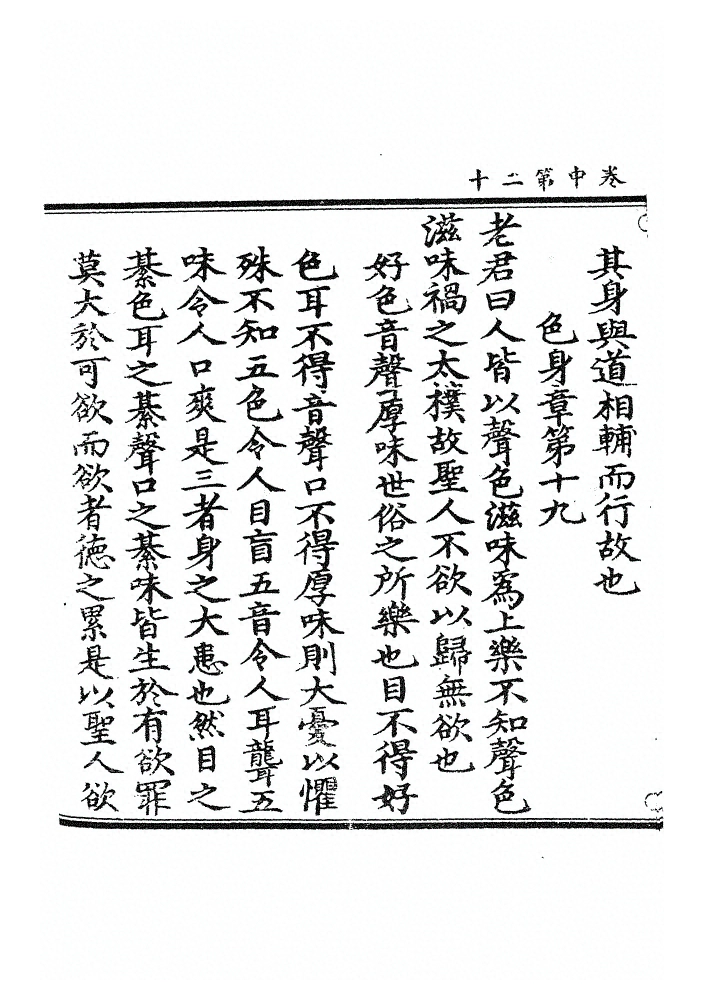 卷中第二十
其身與道相輔而行故也
色身章第十九
老君曰人皆以聲色滋味爲上樂不知聲色
滋味禍之太樸故聖人不欲以歸無欲也
好色音聲厚味世俗之所樂也目不得好
色耳不得音聲口不得厚味則大憂以懼
殊不知五色令人目盲五音令人耳聾五
味令人口爽是三者身之大患也然目之
綦色耳之綦聲口之綦味皆生於有欲罪
莫大於可欲而欲者德之累是以聖人欲